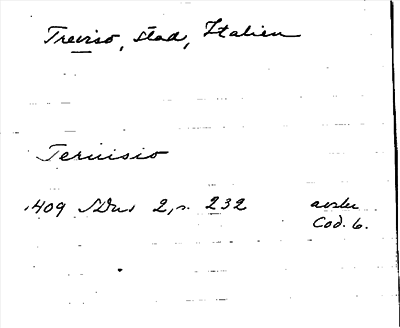 Treviso, stad, Italien
Tervisio
1409 SDns 2, s. 232 avskr
Cod. 6.